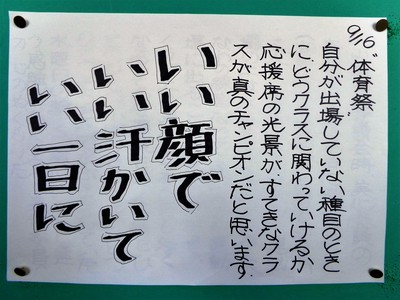 9/16 “体育祭”
自分が出場していない種目のとき
に、どうクラスに関わっていけるか
応援席の光景が、すてきなクラ
スが真のチャンピオンだと思います。
いい顔で
いい汗かいて
いい一日に